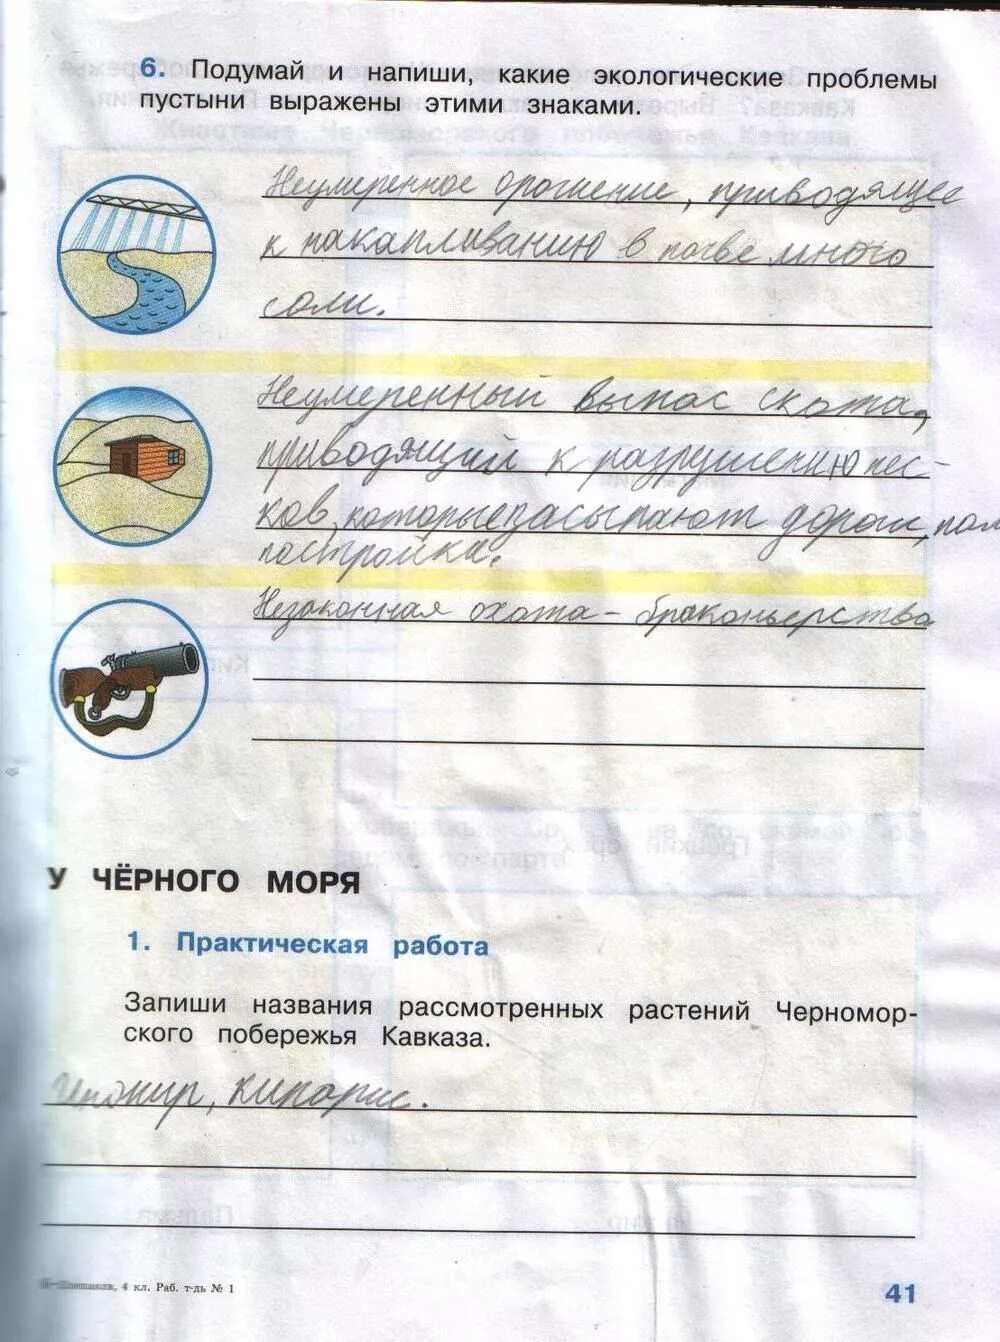 6. Подумай и напиши, какие экологические проблемы
пустыни выражены этими знаками.
Неумеренное орошение, приводящее
к накапливанию в почве много
соли.
Неумеренный выпас скота,
приводящий к разрушению пес-
ков, которые засыпают дороги, пол
постройка.
Незаконная охота - браконьерства
У ЧЁРНОГО МОРЯ
1. Практическая работа
Запиши названия рассмотренных растений Черномор-
ского побережья Кавказа.
Инжир, кипарис.
4 кл. Раб. т-дь № 1
41